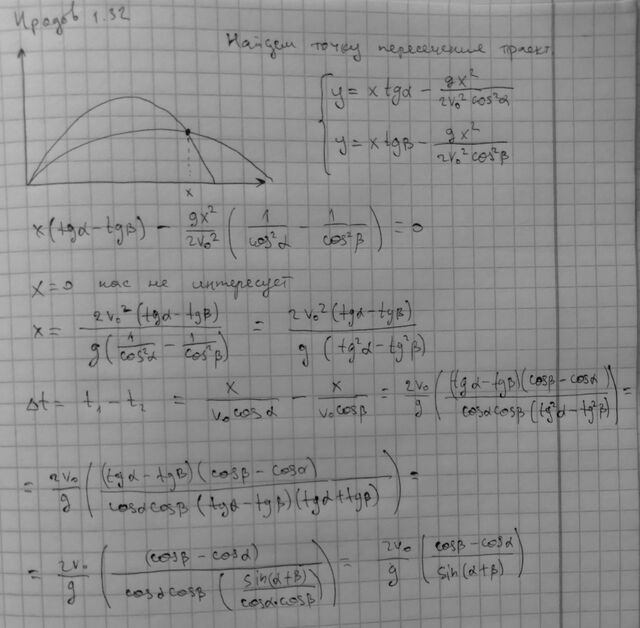 Иродов 1.32
Найдем точку пересечение траект.
y = x tgα − gx²/(2v₀²cos²α)
y = x tgβ − gx²/(2v₀²cos²β)
x
x(tgα − tgβ) − gx²/(2v₀²) (1/cos²α − 1/cos²β) = 0
x=0 нас не интересует
x = 2v₀²(tgα − tgβ)/(g(1/cos²α − 1/cos²β)) = 2v₀²(tgα − tgβ)/(g (tg²α − tg²β))
Δt = t₁ − t₂ = x/(v₀cosα) − x/(v₀cosβ) = 2v₀/g ((tgα − tgβ)(cosβ − cosα)/(cosαcosβ(tg²α − tg²β))) =
= 2v₀/g ((tgα − tgβ)(cosβ − cosα)/(cosαcosβ(tgα − tgβ)(tgα + tgβ))) =
= 2v₀/g ((cosβ − cosα)/(cosαcosβ(sin(α+β)/(cosα·cosβ)))) = 2v₀/g ((cosβ − cosα)/sin(α+β))